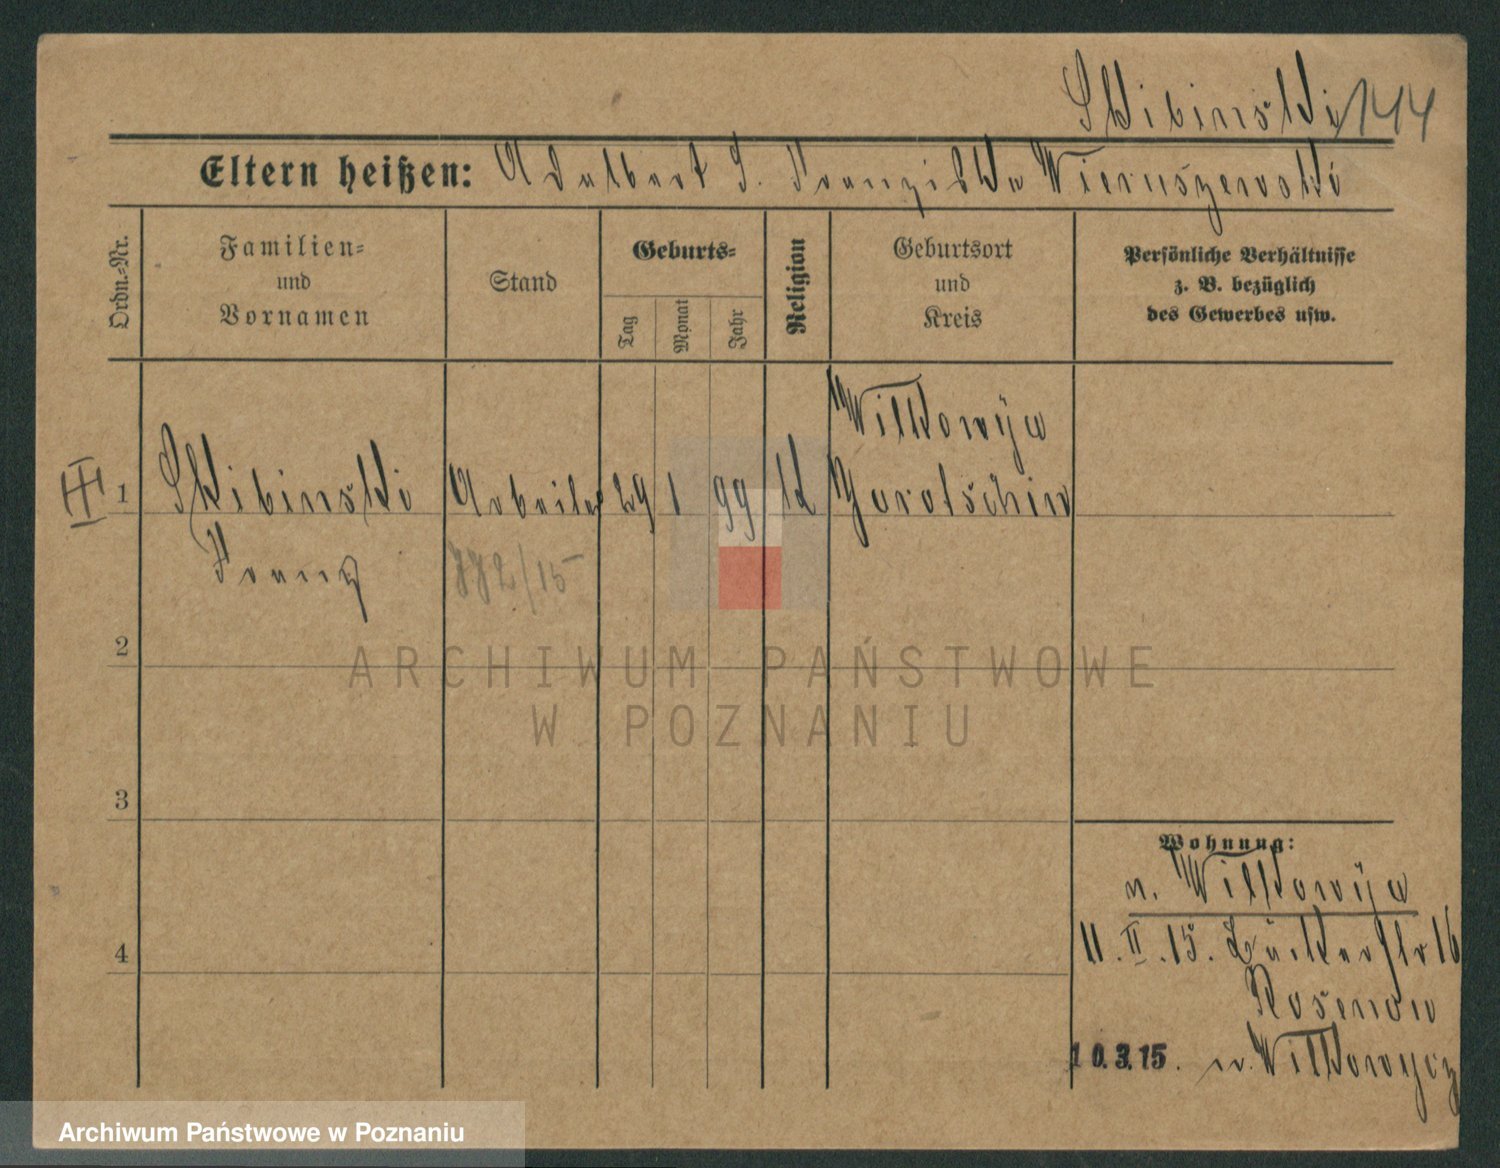 Skibinski 144
Eltern heißen: Adalbert S. Franziska Wieruszewski
Ordn.=Nr.
Familien=
und
Vornamen
Stand
Geburts=
Tag
Monat
Jahr
Religion
Geburtsort
und
Kreis
Persönliche Verhältnisse
z. B. bezüglich
des Gewerbes usw.
III 1 Skibinski Arbeiter 29 1 99 k Wilkowÿa
Jarotschin
Franz 772/15
2
3
4
ARCHIWUM PAŃSTWOWE
W POZNANIU
Wohnung:
n. Wilkowÿa
11. II. 15. Bäckerstr 16
Rosenow
10.3.15. n. Wilkowycz
Archiwum Państwowe w Poznaniu